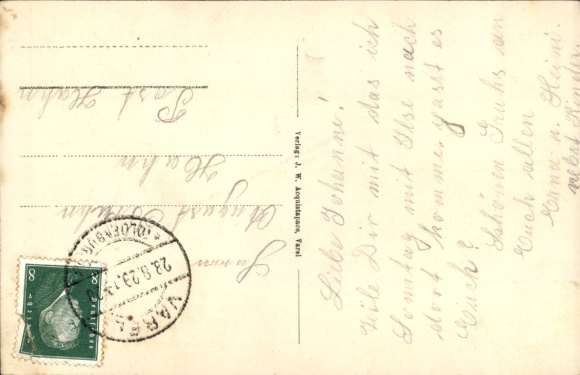 Liebe Johanne!
Wile Dir mit das ich
Sonntag mit Ilse nach
dort komme. passt es
Euch?
Schönen Gruhs an
Euch allen
Erna u. Heini.
nebst Kinder
Verlag: J. W. Acquistapace, Varel
August
Hahn
Post Hahn
VAREL
(OLDENBURG)
28.8.29.
Deutsches Reich
8 8